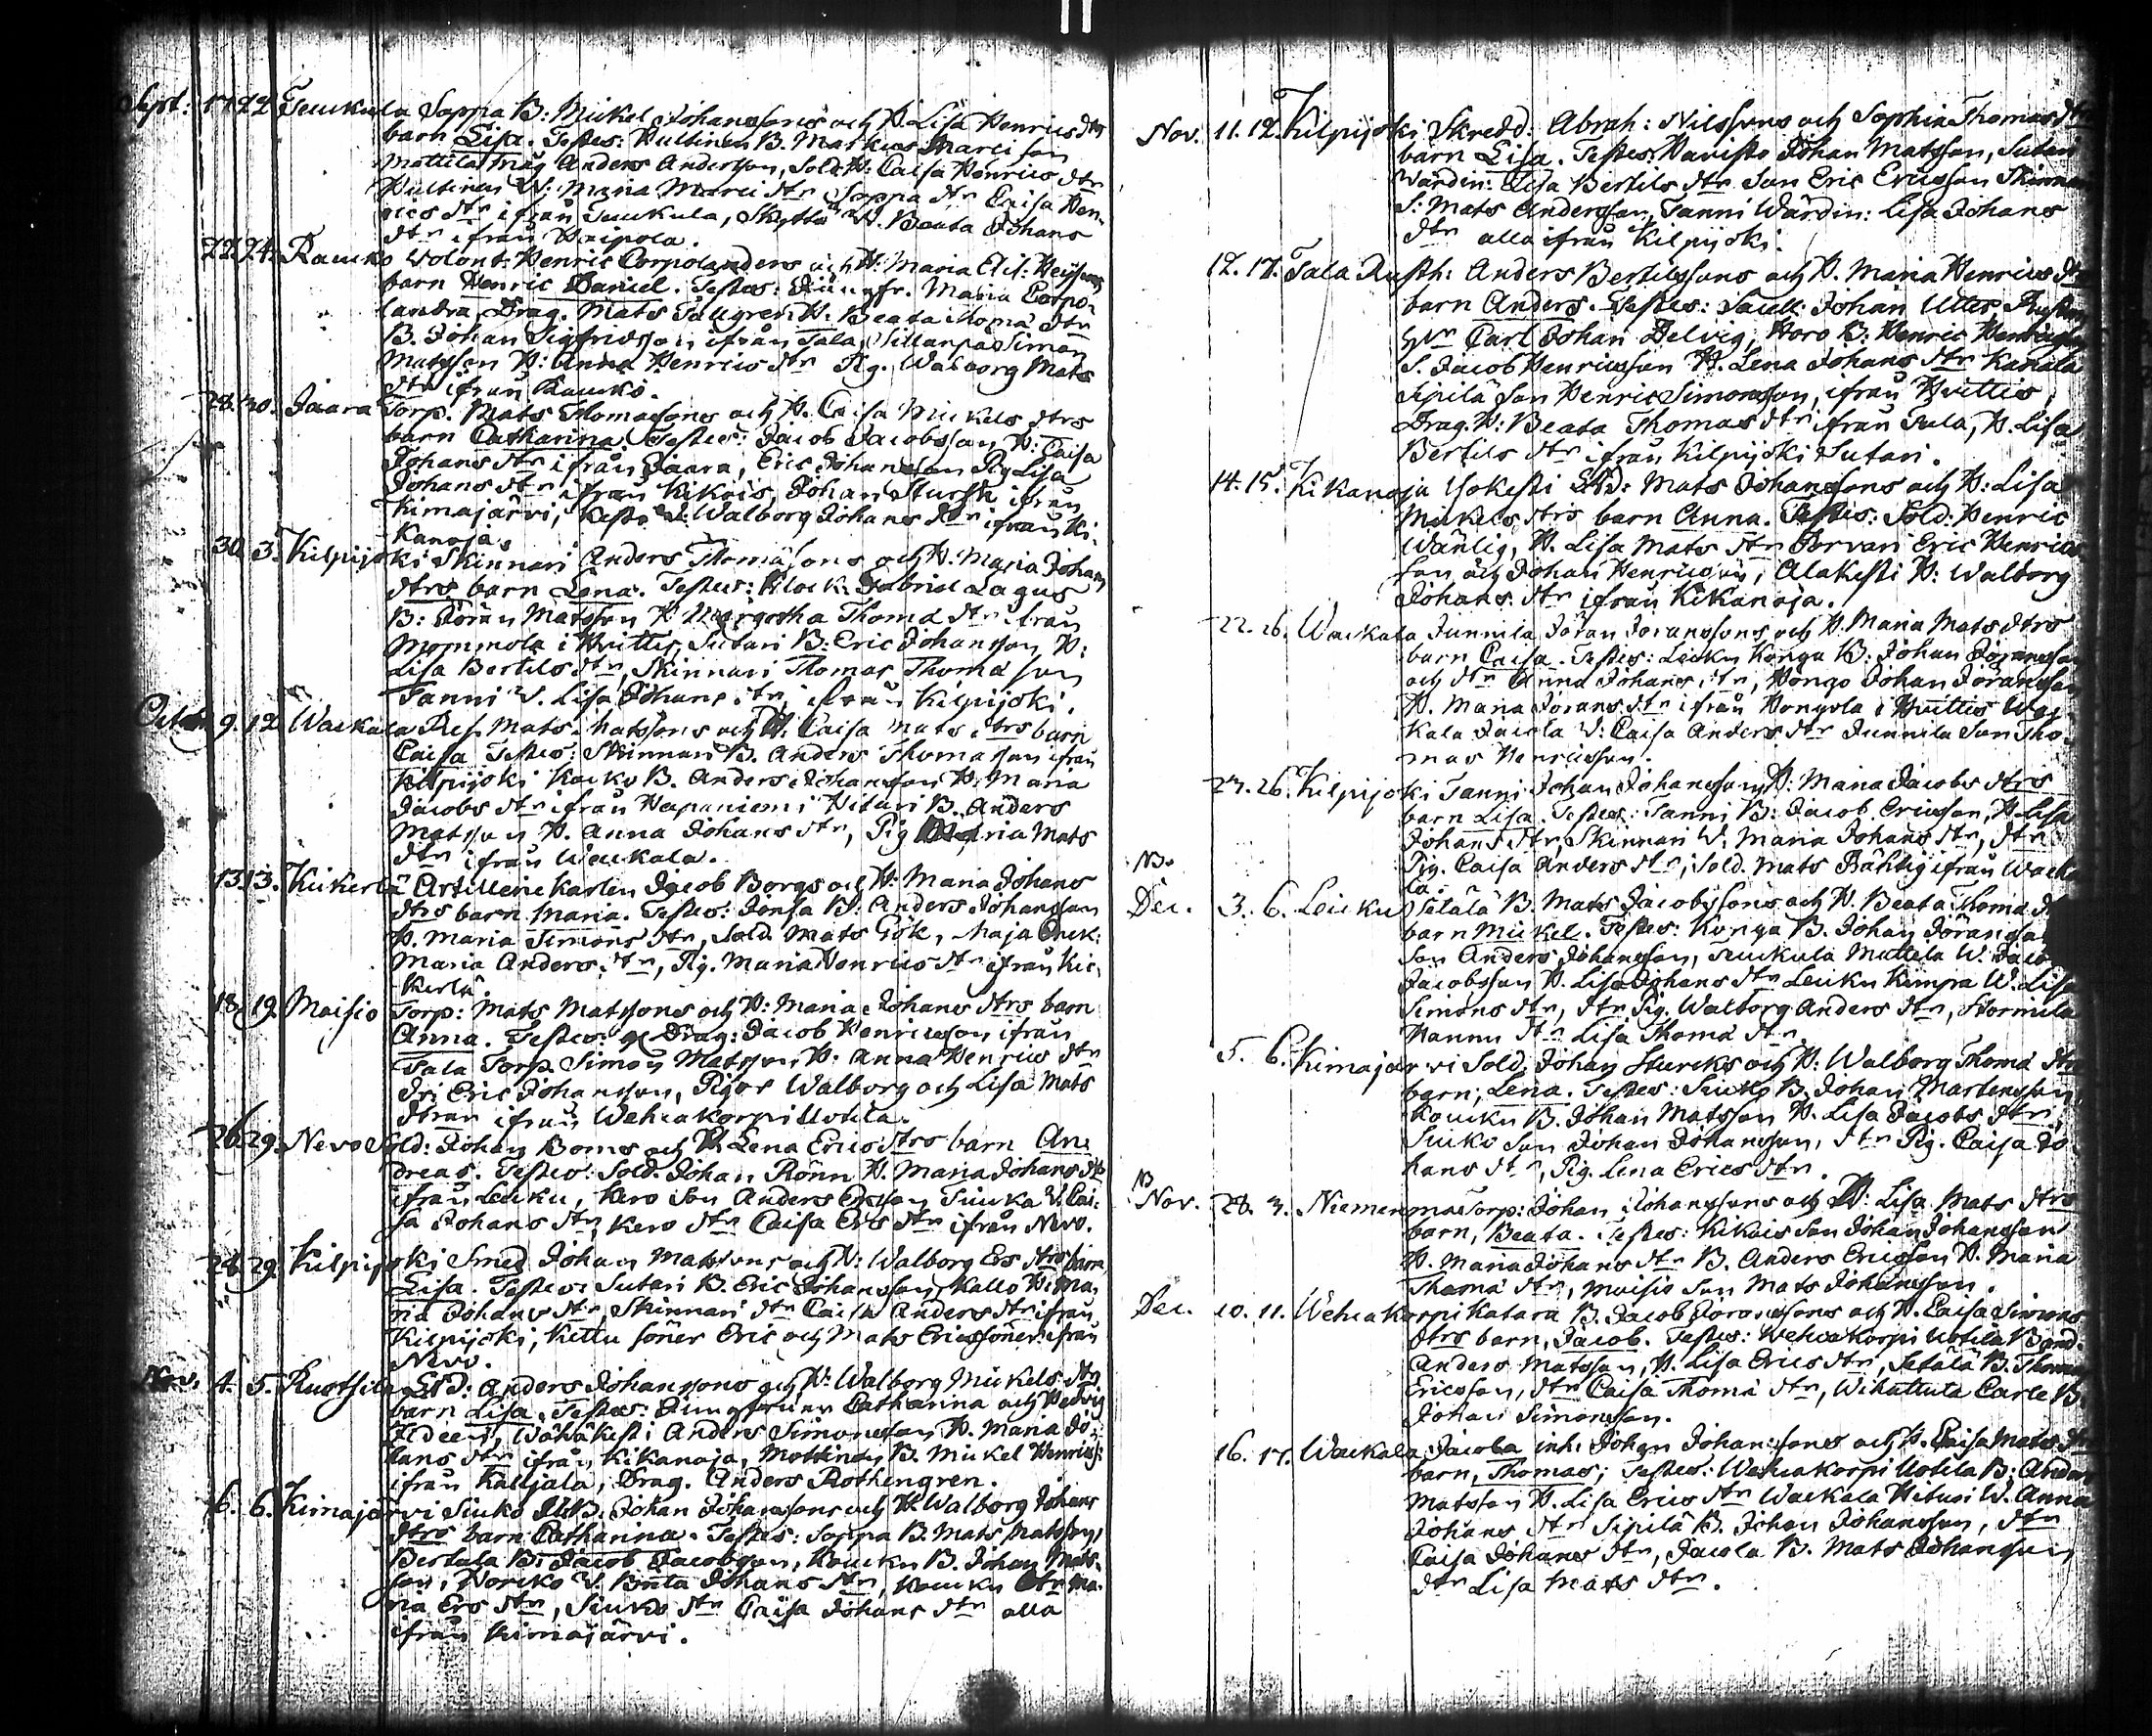 Sept: 17. 22 Seuckula Soppa B: Mickel Johanssons och H. Lisa Henrics dtrs
barn Lisa. Testes: Hultinen B. Mathias Marci son
Mattila måg Anders Andersson, Sold. H: Caisa Henrics dtr
Hultinen W: Maria Marci dtr Soppa dtr Caisa Hen-
rics dtr ifrån Seuckula, Skyttä W. Beata Johans
dtr ifrån Haipola.
22. 24. Raucko Volont. Henric Corpolanders och H: Maria Elis:
barn Henric Daniel. Testes: Jungfr. Maria Corpo-
landra, Drag. Mats Tallgren H. Beata Thomæ dtr
B. Johan Sigfridsson ifrån Sala, Sillanpä Simon
Matsson H: Anna Henrics dtr Pig. Walborg Mats
dtr ifrån Raucko.
28. 30. Jaara Torp. Mats Thomassons och H. Caisa Mickels dtrs
barn Catharina Testes: Jacob Jacobsson H: Caisa
Johans dtr ifrån Jaara, Eric Johansson Pig Lisa
Johans dtr ifrån Kikois, Johan Sturck ifrån
Kimajärvi, Kesti W: Walborg Johans dtr ifrån Ki-
kanoja.
30. 3. Kilpijoki Skinnari Anders Thomæsons och H. Maria Johans
dtrs barn Lena. Testes: Klock: Gabriel Lagus
B: Jöran Matsson H Margetha Thomæ dtr ifrån
i Hvittis, Sutari B: Eric Johansson, H:
Lisa Bertils dtr, Skinnari Thomas Thomæ son
Tanni W. Lisa Johans dtr, ifrån Kilpijoki.
Octob. 9. 12 Wackala Res. Mats Matssons och H. Caisa Mats dtrs barn
Caisa Testes: Skinnari B. Anders Thomasson ifrån
Kilpijoki Kaucko B. Anders Johansson H: Maria
Jacobs dtr ifrån Hapaniemi Hituri B. Anders
Matsson H. Anna Johans dtr, Pig Maria Mats
dtr ifrån Wackala.
13. 13. Kiikerlä Artillerie karlen Jacob Borgs och H: Maria Johans
dtrs barn Maria. Testes: Jonsa B: Anders Johansson
H. Maria Simons dtr, Sold. Mats Gök, Maja Enck:
Maria Anders dtr, Pig. Maria Henrics dtr ifrån Kic-
kerlä.
18. 19. Moisio Torp: Mats Matssons och H: Maria Johans dtrs barn
Anna. Testes: Drag: Jacob Henricsson ifrån
Sala Torp. Simon Matsson, H: Anna Henrics dtr
Dr: Eric Johansson, Pigor Walborg och Lisa Mats
dtrar ifrån Wehcakorpi Uotila.
26. 29. Nevo Sold: Johan Boms och H. Lena Erics dtrs barn An-
dreas. Testes: Sold. Johan Rönn H. Maria Johans dtr
ifrån Leuku, Kero Son Anders Ericsson Siucka W. Cai-
sa Johans dtr, Kero dtr Caisa Ers dtr ifrån Nevo.
28. 29. Kilpijoki Smed. Johan Matssons och H: Walborg Ers dtrs barn,
Lisa. Testes: Sutari B. Eric Johansson, Kallo H: Ma-
ria Johans dtr, Skinnari dtr Caisa Anders dtr ifrån
Kilpijoki, Kittu söner Eric och Mats Ericssöner ifrån
Nevo.
Nov. 4. 5. Ruotsila LSD: Anders Johanssons och H: Walborg Mickels dtrs
barn Lisa. Testes: Jungfruer Catharina och Hedvig
Ideen, Wähäkesti Anders Simonsson, H. Maria Jo-
hans dtr ifrån Kikanoja, Mottinen B. Mickel Henricss:
ifrån Kalljala, Drag. Anders Rothengren.
6. 6. Kimajärvi Siuko B: Johan Johanssons och H. Walborg Johans
dtrs barn Catharina. Testes: Soppa B. Mats Matsson,
Bertala B: Jacob Jacobsson, Koucku B. Johan Mats-
son, Noricko W. Beata Johans dtr, Koucku dtr Ma-
ria Ers dtr, Siucko dtr Caisa Johans dtr alla
ifrån Kimajärvi.
Nov. 11. 12. Kilpijoki Skredd: Abrah: Nilssons och Sophia Thomas dtrs
barn Lisa. Testes: Havisto Johan Matsson, Sutari
Wärdin: Lisa Bertils dtr Son Eric Ericsson Skinna
S: Mats Andersson, Tanni Wärdin: Lisa Johans
dtr alla ifrån Kilpijoki.
12. 17. Sala Rusth: Anders Bertilssons och H. Maria Henrics dtrs
barn Anders. Testes: Johan Utter,
Carl Johan Delvig, Horo B: Henric Henricsson
S. Jacob Henricsson H. Lena Johans dtr Karala
Sipilä Son Henric Simonsson, ifrån Hvittis,
Drag. H: Beata Thomas dtr ifrån Sula, H. Lisa
Bertils dtr ifrån Kilpijoki Sutari.
14. 15. Kikanoja Yokesti LSD: Mats Johanssons och H: Lisa
Mickels dtrs barn Anna. Testes: Sold: Henric
Wänlig, H. Lisa Mats dtr Torvari Eric Henrics
son och Johan Henricsson, Alakesti H: Walborg
Johans dtr ifrån Kikanoja.
22. 26. Wackala Junnila Jöran Joranssons och H. Maria Mats dtrs
barn Caisa. Testes: Leuku Konga B: Johan Joransson
och dtr Anna Johans dtr, Hongo Johan Joransson
H. Maria Jorans dtr ifrån Hongola i Hvittis Wac-
kala Jacola W: Caisa Anders dtr Junnila Son Tho-
mas Henricsson.
23. 26. Kilpijoki Tanni Johan Johanssons H: Maria Jacobs dtrs
barn Lisa. Testes: Tanni B: Jacob Ericsson, H. Lisa
Johans dtr, Skinnari W. Maria Johans dtr, dtr
Pig. Caisa Anders dtr, Sold. Mats Bähtig ifrån Wacka
la.
NB.
Dec. 3. 6. Leuku Setälä B. Mats Jacobssons och H. Beata Thomæ
barn Mickel. Testes: Konga B. Johan Jöransson
Son Anders Johansson, Seuckula Mattila W. Jacob
Jacobsson H. Lisa Johans dtr Leuku Kimpa W. Lisa
Simons dtr, dtr Pig. Walborg Anders dtr, Stormila
Hannu dtr Lisa Thomæ dtr
5. 6. Kimajärvi Sold. Johan Sturcks och H: Walborg Thomæ dtrs
barn, Lena. Testes: Siuko B. Johan Martensson,
Koucku B. Johan Matsson H. Lisa Jacobs dtr
Siuko Son Johan Johansson, dtr Pig. Caisa Jo-
hans dtr, Pig. Lena Erics dtr.
NB
Nov. 28. 3. Niemenmaa Torp: Johan Johanssons och H: Lisa Mats dtrs
barn, Beata. Testes: Kikois Son Johan Johansson
H. Maria Johans dtr B. Anders Ericsson H. Maria
Thomæ dtr, Moisio Son Mats Johansson.
Dec. 10. 11. Wehcakorpi Katara B. Jacob Joranssons och H. Caisa Simons
dtrs barn, Jacob. Testes: Wehcakorpi Uotila Bond.
Anders Matsson, H. Lisa Erics dtr, Setälä B. Thomas
Ericsson, dtr Caisa Thomæ dtr, Wihattula Carle B.
Johan Simonsson.
16. 17. Wackala Jacola inh: Johan Johanssons och H. Caisa Mats dtrs
barn, Thomas; Testes: Wehcakorpi Uotila B: Anders
Matsson H. Lisa Erics dtr Wackala Hituri W. Anna
Johans dtr Sipilä B. Johan Johansson, dtr
Caisa Johans dtr, Jacola B. Mats Johansson
dtr Lisa Mats dtr.